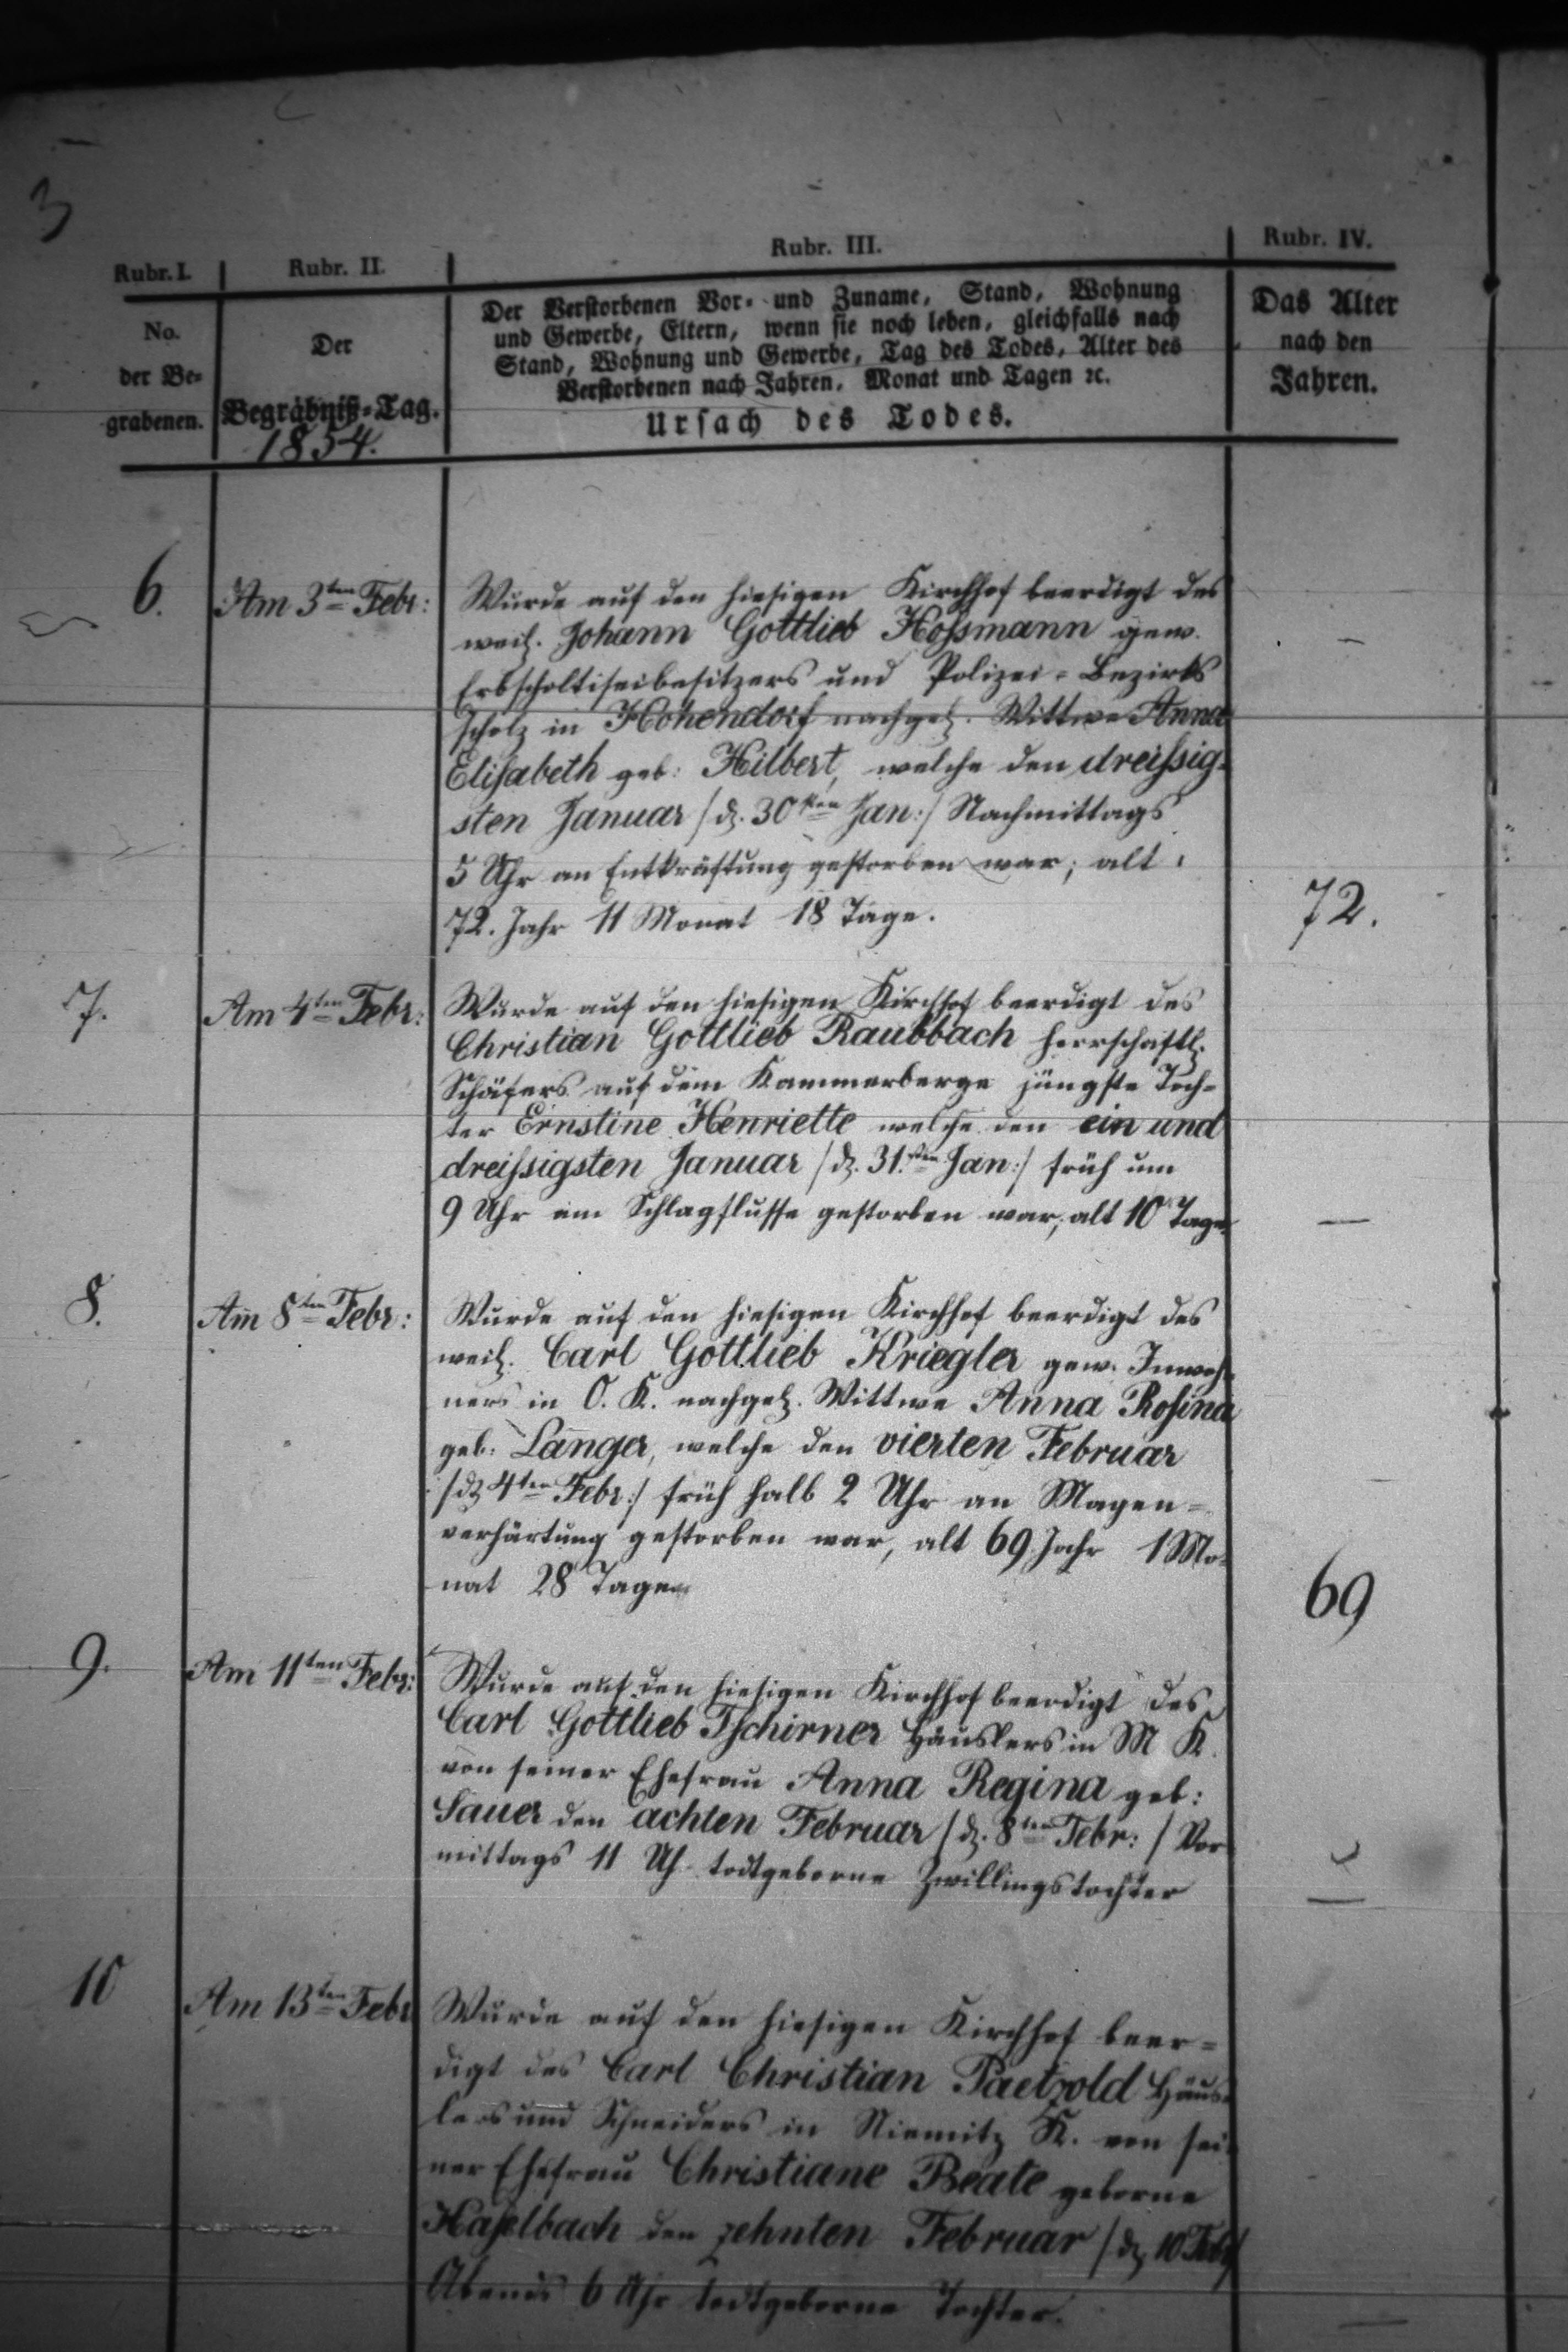 3
Rubr. I.
Rubr. II.
Rubr. III.
Rubr. IV.
No.
der Be-
grabenen.
Der
Begräbniß-Tag.
1854.
Der Verstorbenen Vor- und Zuname, Stand, Wohnung
und Gewerbe, Eltern, wenn sie noch leben, gleichfalls nach
Stand, Wohnung und Gewerbe, Tag des Todes, Alter des
Verstorbenen nach Jahren, Monat und Tagen ꝛc.
Ursach des Todes.
Das Alter
nach den
Jahren.
6.
Am 3ten Febr:
Wurde auf den hiesigen Kirchhof beerdigt des
weil. Johann Gottlieb Hoffmann gew.
Erbscholtiseibesitzers und Polizei-Bezirks
scholz in Hohendorf nachgel. Wittwe Anna
Elisabeth geb: Hilbert, welche den dreißig-
sten Januar /d. 30sten Jan:/ Nachmittags
5 Uhr an Entkräftung gestorben war; alt:
72. Jahr 11 Monat 18 Tage.
72.
7.
Am 4ten Febr:
Wurde auf den hiesigen Kirchhof beerdigt des
Christian Gottlieb Raubbach herrschaftl.
Schäfers auf dem Kammerberge jüngste Toch-
ter Ernstine Henriette welche den ein und
dreißigsten Januar /d. 31.sten Jan:/ früh um
9 Uhr am Schlagflusse gestorben war; alt 10 Tage.
—
8.
Am 8ten Febr:
Wurde auf den hiesigen Kirchhof beerdigt des
weil. Carl Gottlieb Kriegler gew. Inwoh-
ners in O. K. nachgel. Wittwe Anna Rosina
geb: Langer, welche den vierten Februar
/d. 4ten Febr:/ früh halb 2 Uhr an Magen-
verhärtung gestorben war, alt 69 Jahr 1 Mo-
nat 28 Tage
69
9.
Am 11ten Febr:
Wurde auf den hiesigen Kirchhof beerdigt des
Carl Gottlieb Tschirner Häuslers in M K.
von seiner Ehefrau Anna Regina geb:
Sauer den achten Februar /d. 8ten Febr:/ Vor
mittags 11 Uh. todtgeborne Zwillingstochter
—
10
Am 13ten Febr
Wurde auf den hiesigen Kirchhof beer-
digt des Carl Christian Paetzold Häus-
lers und Schneiders in Niemitz K. von sei-
ner Ehefrau Christiane Beate geborne
Haselbach den zehnten Februar /d. 10 Febr/
Abends 6 Uhr todtgeborne Tochter.
—